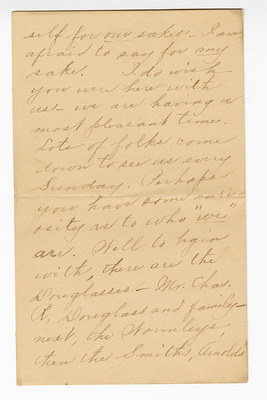 self for our sakes - I am
afraid to say for my
sake. I do wish
you were here with
us - we are having a
most pleasant time.
Lots of folks come
down to see us every
Sunday. Perhaps
you have some curi-
osity as to who "we"
are. Well to begin
with, there are the
Douglasses - Mr. Chas.
R. Douglass and family -
next, the Wormleys,
then the Smiths, Arnolds